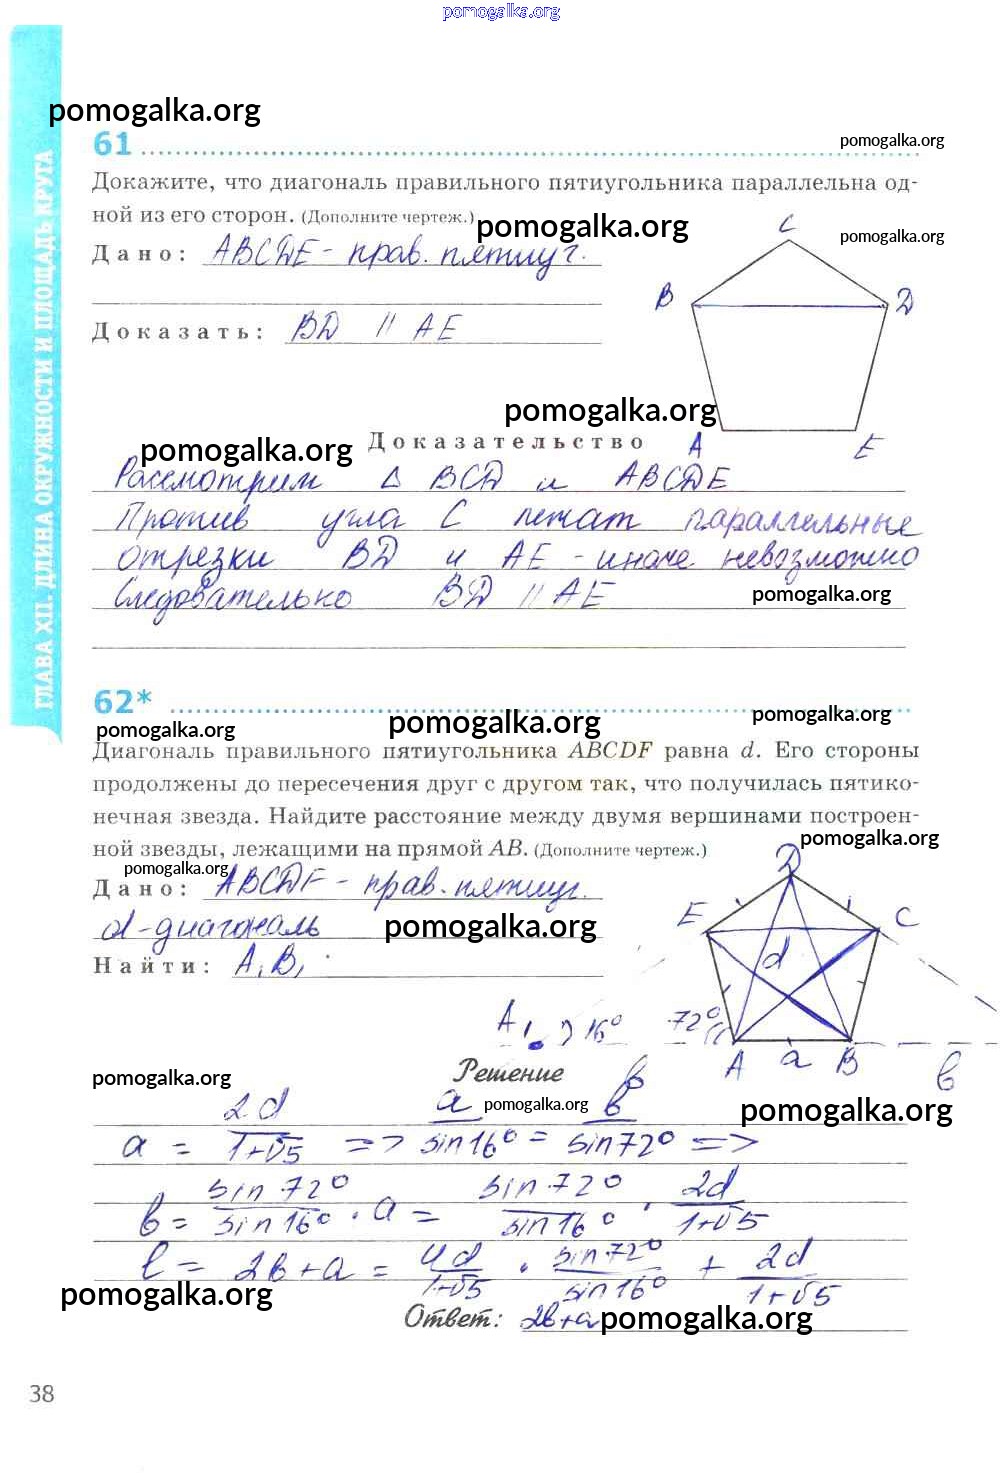 pomogalka.org
pomogalka.org
61
pomogalka.org
Докажите, что диагональ правильного пятиугольника параллельна од-
ной из его сторон. (Дополните чертеж.)
pomogalka.org
pomogalka.org
Дано: ABCDE - прав. пятиуг.
C
B
D
Доказать: BD || AE
pomogalka.org
Доказательство
A
E
pomogalka.org
Рассмотрим Δ BCD и ABCDE
Против угла C лежат параллельные
отрезки BD и AE - иначе невозможно
Следовательно BD || AE
pomogalka.org
ГЛАВА XII. ДЛИНА ОКРУЖНОСТИ И ПЛОЩАДЬ КРУГА
62*
pomogalka.org
pomogalka.org
pomogalka.org
Диагональ правильного пятиугольника ABCDF равна d. Его стороны
продолжены до пересечения друг с другом так, что получилась пятико-
нечная звезда. Найдите расстояние между двумя вершинами построен-
ной звезды, лежащими на прямой AB. (Дополните чертеж.)
pomogalka.org
pomogalka.org
Дано: ABCDF - прав. пятиуг.
d - диагональ
pomogalka.org
Найти: A₁B₁
D
E
C
d
A₁
16°
72°
A a B
в
Решение
pomogalka.org
pomogalka.org
pomogalka.org
a = 2d/(1+√5) => a/sin16° = в/sin72° =>
в = sin72°/sin16° · a = sin72°/sin16° · 2d/(1+√5)
l = 2в+a = 4d/(1+√5) · sin72°/sin16° + 2d/(1+√5)
pomogalka.org
Ответ: 2в+a
pomogalka.org
38